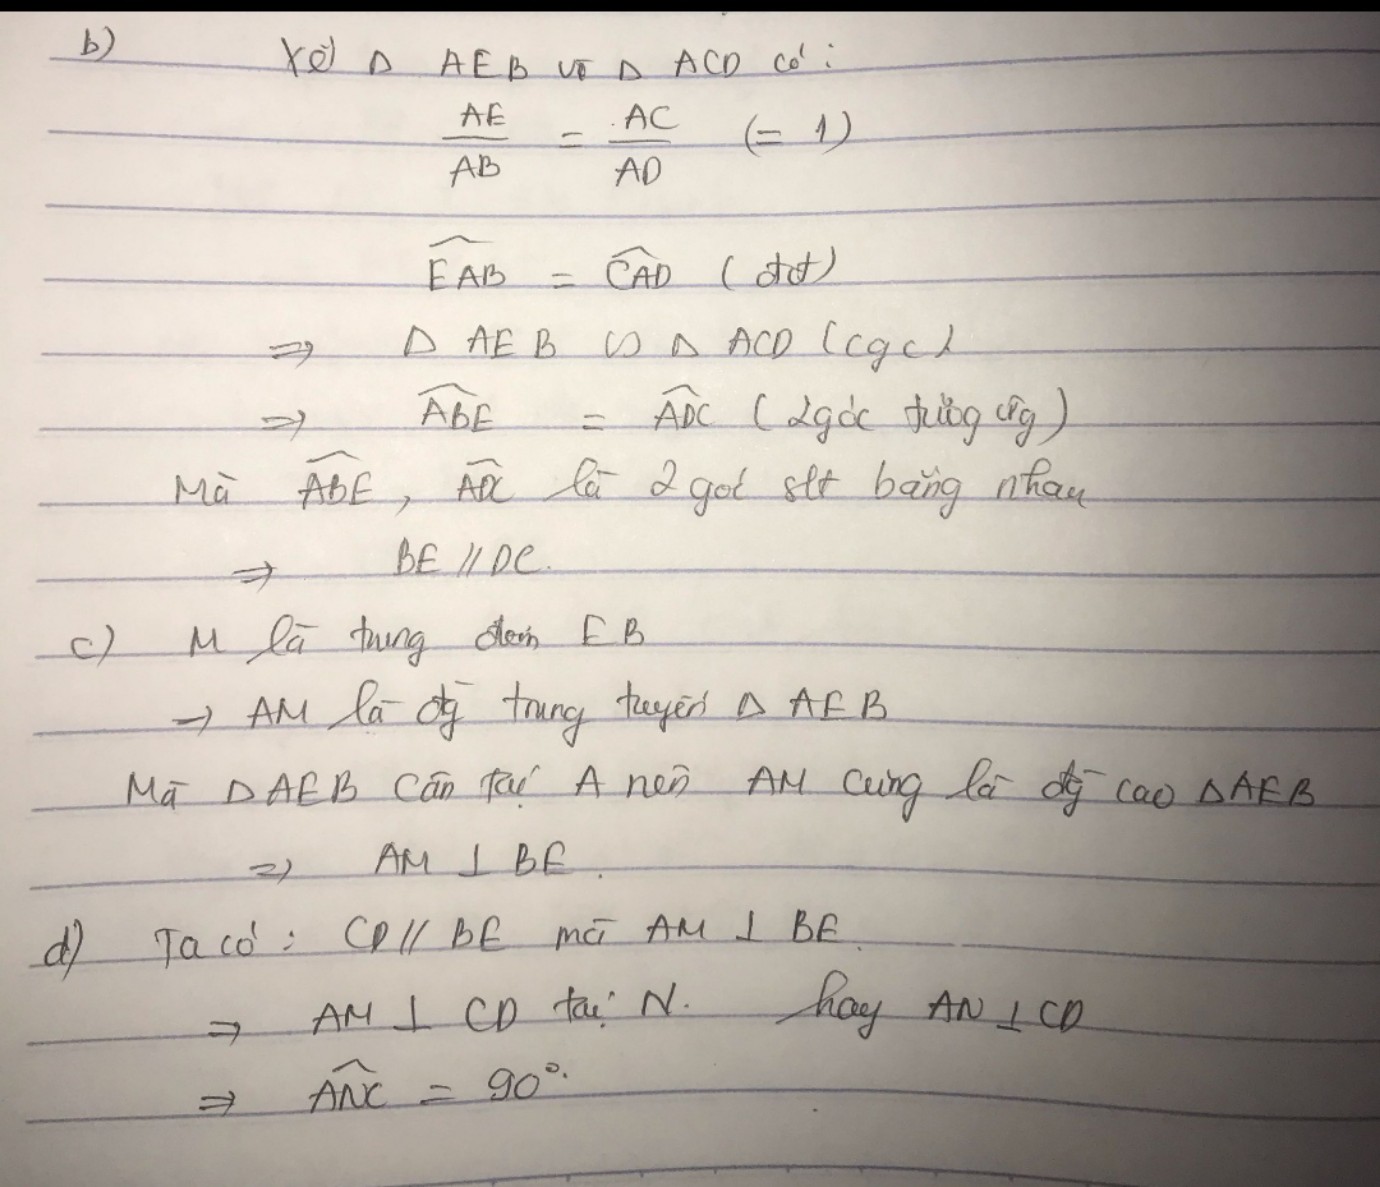 b) Xét Δ AEB và Δ ACD có :
AE/AB = AC/AD (= 1)
EAB = CAD (đđ)
⇒ Δ AEB ∽ Δ ACD (cgc)
⇒ ABE = ADC (2 góc tương ứg)
Mà ABE, ADC là 2 goć slt bằng nhau
⇒ BE // DC.
c) M là trung EB
→ AM là đg̀ trung tuyến Δ AEB
Mà Δ AEB cân tại A nên AM cũng là đg̀ cao Δ AEB
⇒ AM ⊥ BE.
d) Ta có : CD // BE mà AM ⊥ BE.
⇒ AM ⊥ CD tại N. hay AN ⊥ CD
⇒ ANC = 90°.